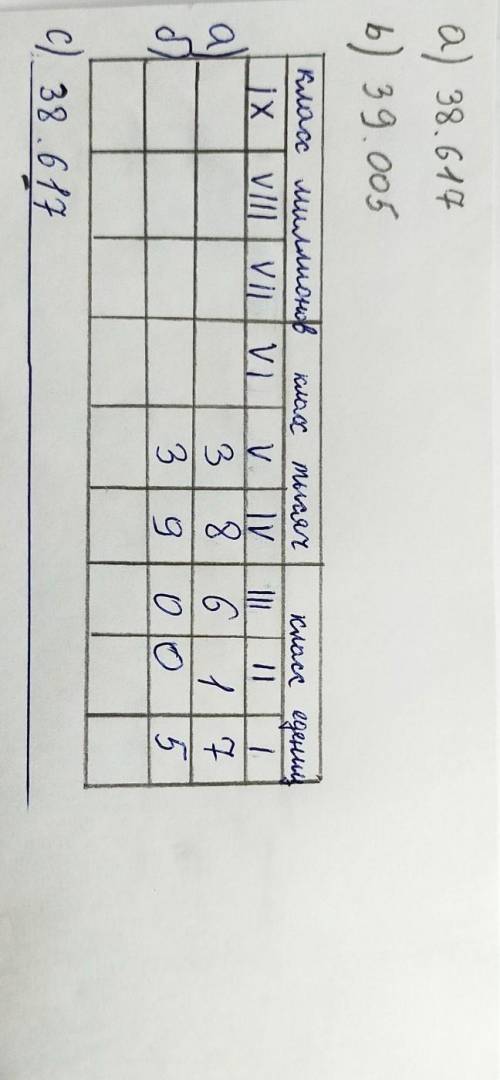 a) 38.617
b) 39.005
класс миллионов класс тысяч класс едениц
IX VIII VII VI V IV III II I
а) 3 8 6 1 7
б) 3 9 0 0 5
c) 38.617